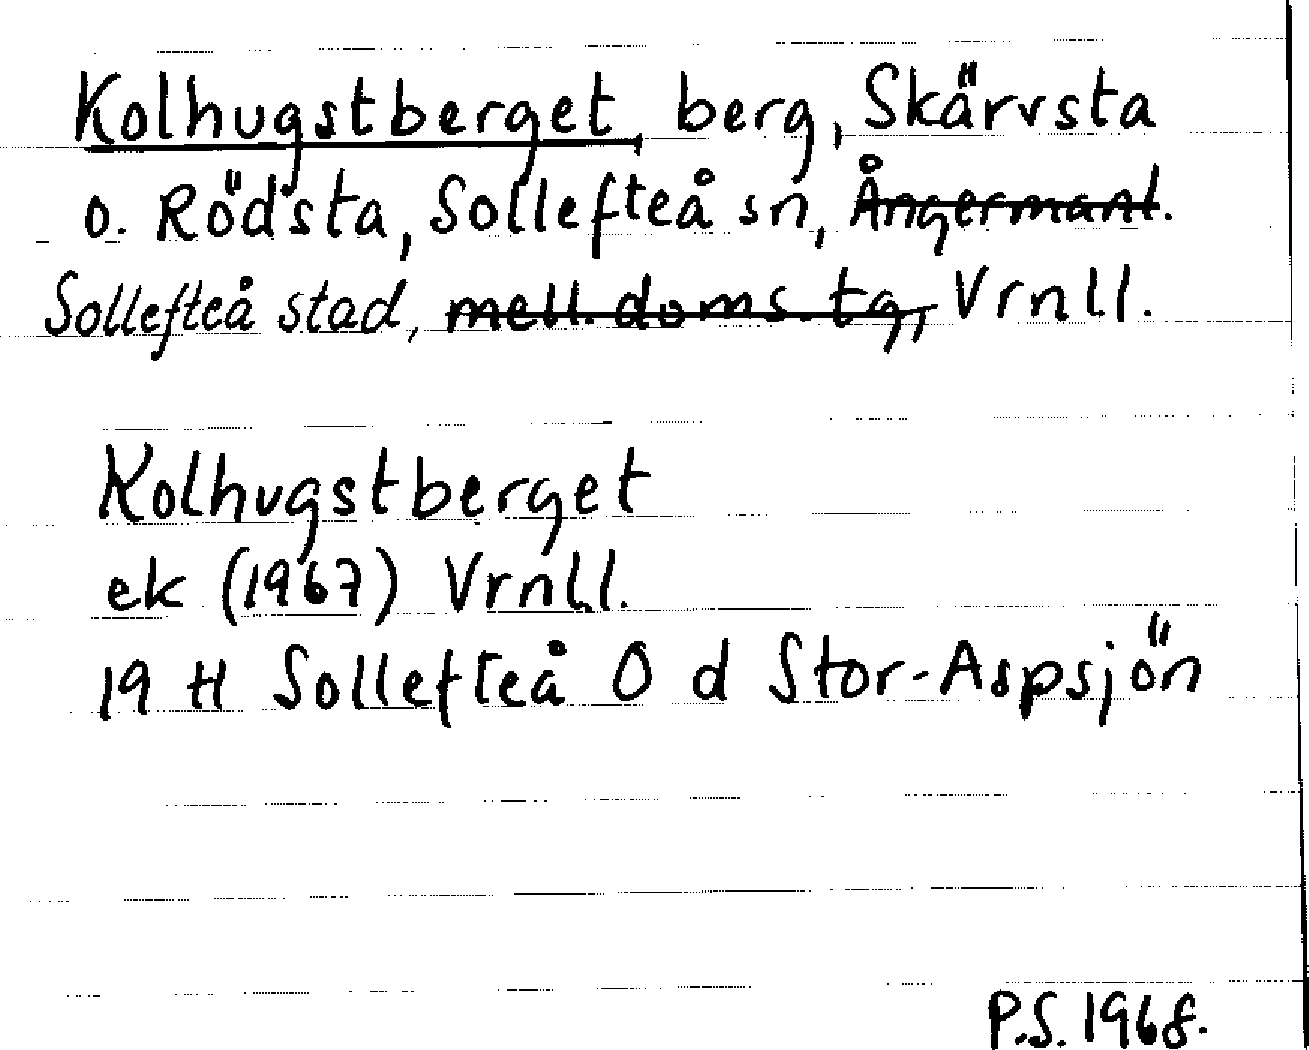 Kolhugstberget, berg, Skärvsta
o. Rödsta, Sollefteå sn, Ångermanl.
Sollefteå stad, mell. doms. tg, Vrnl.l.
Kolhugstberget
ek (1967) Vrnl.l.
19 H Sollefteå O d Stor-Aspsjön
P.S. 1968.